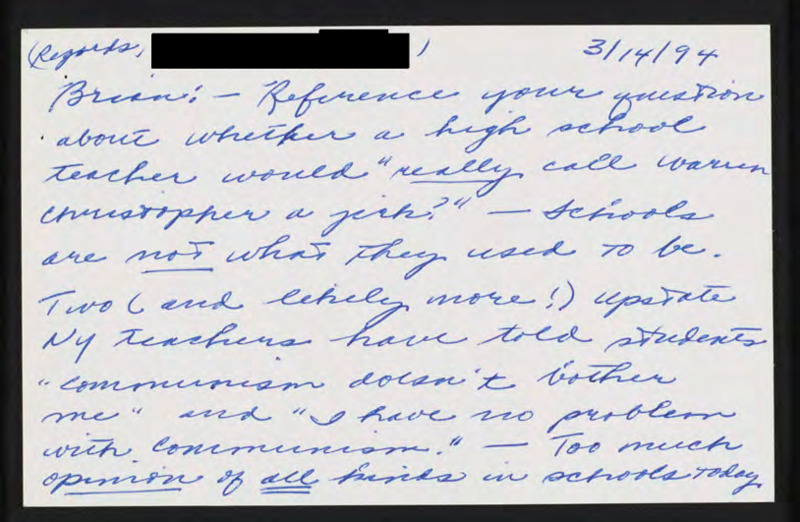 (Regards, ) 3/14/94
Brian: — Reference your question
about whether a high school
teacher would "really call Warren
Christopher a jerk?" — Schools
are not what they used to be.
Two (and likely more!) upstate
NY teachers have told students
"communism doesn't bother
me" and "I have no problem
with communism." — Too much
opinion of all kinds in schools today